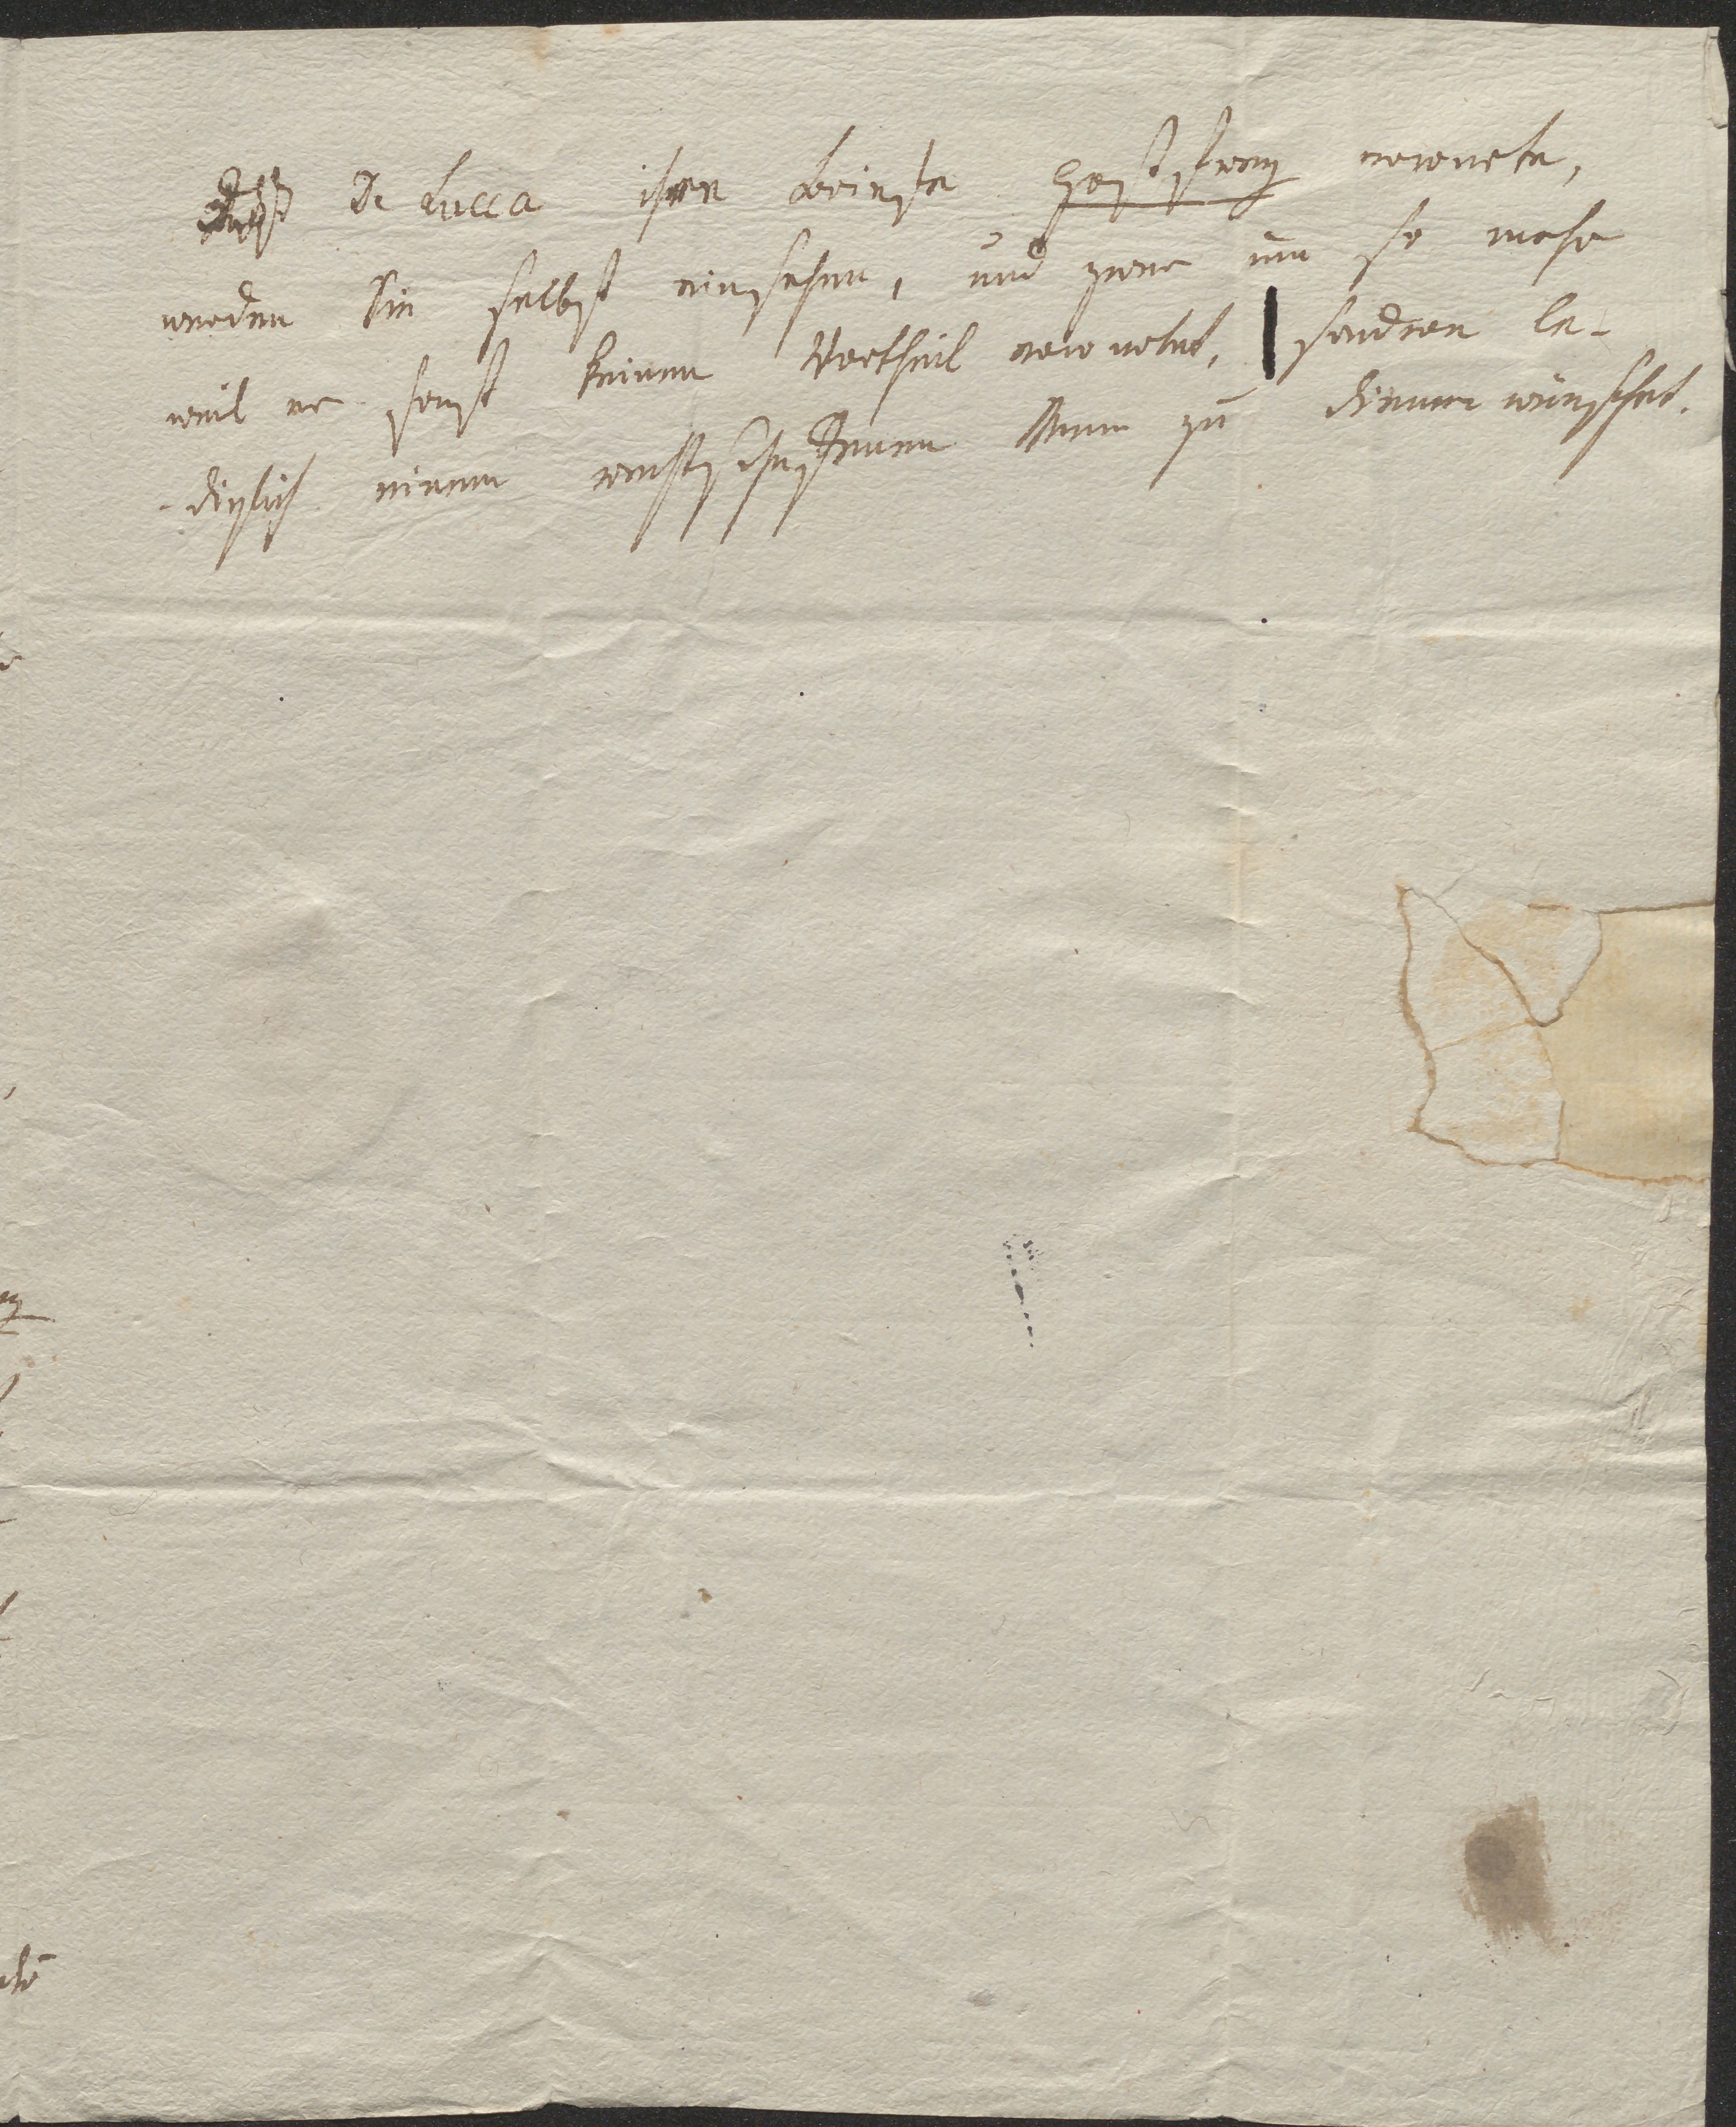 Daß De Lucca ihre Briefe Postfrey erwarte,
werden Sie selbst einsehen, und zwar um so mehr
weil er sonst keinen Vortheil erwartet, sondern le-
diglich einem rechtschafenen Mann zu dienen wünschet.